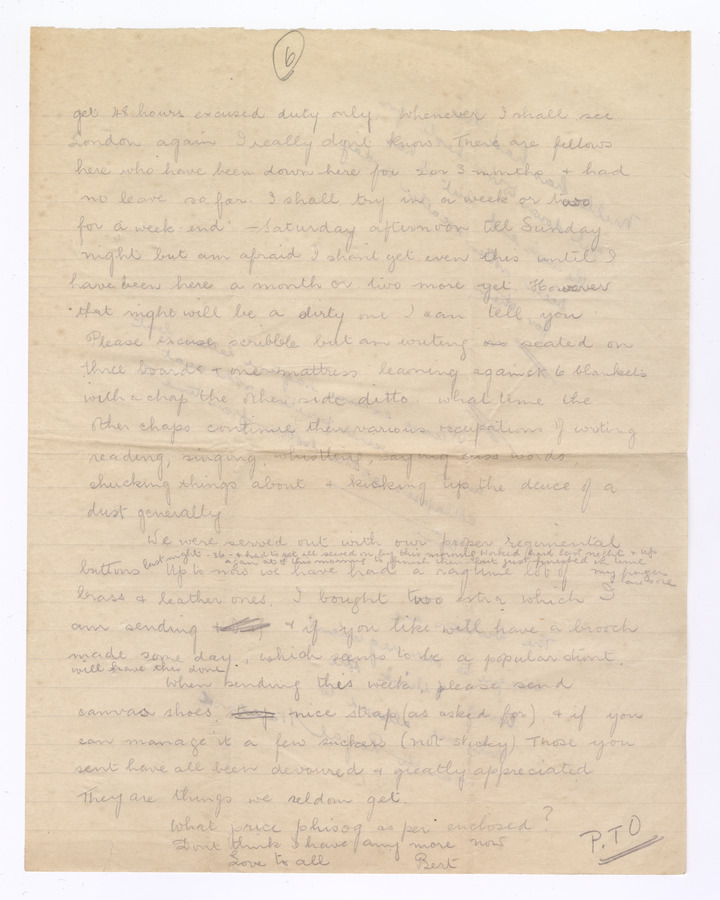 6
get 48 hours excused duty only. Whenever I shall see
London again I really dont know. There are fellows
here who have been down here for 2 or 3 months & had
no leave so far. I shall try in a week or two
for a week-end - Saturday afternoon till Sunday
night but am afraid I shant get even this until I
have been here a month or two more yet. However
that night will be a dirty one I can tell you
Please excuse scribble but am writing seated on
three boards & one mattress leaning against 6 blankets
with a chap the other side ditto. What time the
other chaps continue their various occupations of writing
reading, singing, whistling, saying cuss words,
chucking things about & kicking up the deuce of a
dust generally
We were served out with our proper regimental
last night - 16 - & had to get all sewed on by this morning worked hard last night & up
again at 5 this morning to finish them just finished in time
my fingers are sore
buttons Up to now we have had a ragtime lot of
brass & leather ones. I bought two extra which I
am sending & if you like will have a brooch
made some day, which seems to be a popular stunt.
will have this done
When sending this week, please send
canvas shoes, nice strap (as asked for), & if you
can manage it a few suckers (not sticky) Those you
sent have all been devoured & greatly appreciated
They are things we seldom get.
What price phisog as per enclosed?
Dont think I have any more now
Love to all Bert
P.T.O